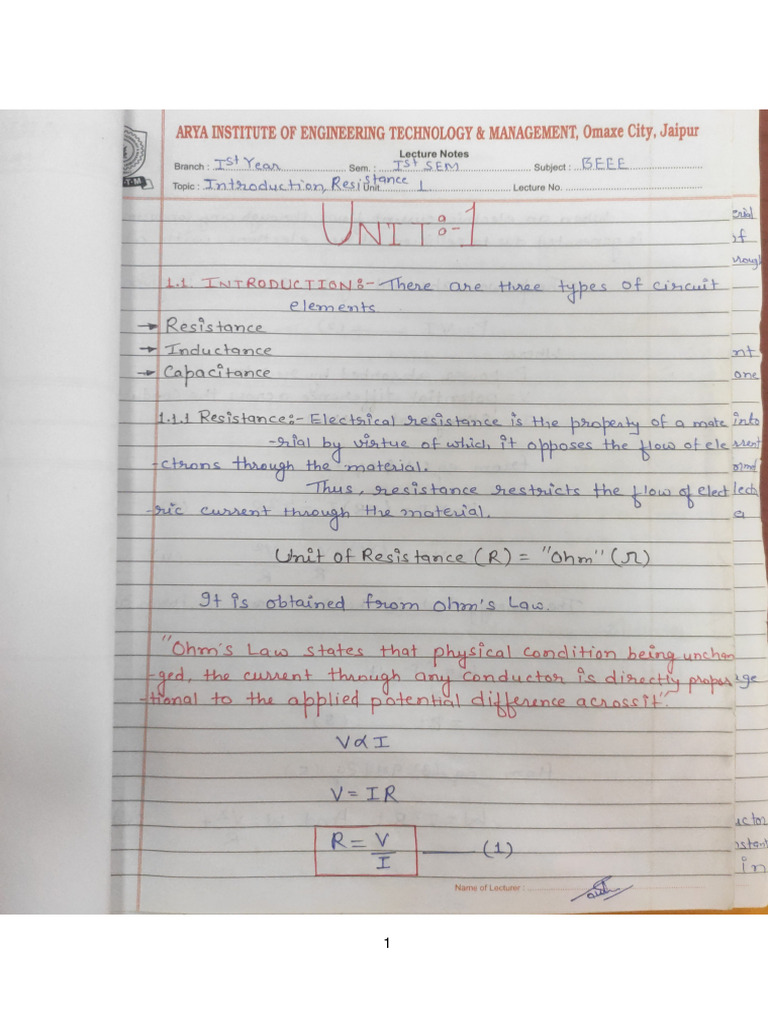 ARYA INSTITUTE OF ENGINEERING TECHNOLOGY & MANAGEMENT, Omaxe City, Jaipur
Lecture Notes
Branch : Ist Year Sem. : Ist SEM Subject : BEEE
Topic : Introduction, Resistance Unit 1 Lecture No.
UNIT:-1
1.1. INTRODUCTION:- There are three types of circuit
elements
→ Resistance
→ Inductance
→ Capacitance
1.1.1 Resistance:- Electrical resistance is the property of a mate
-rial by virtue of which it opposes the flow of ele
-ctrons through the material.
Thus, resistance restricts the flow of elect
-ric current through the material.
Unit of Resistance (R) = "Ohm" (Ω)
It is obtained from Ohm's Law.
"Ohm's Law states that physical condition being unchan
-ged, the current through any conductor is directly propor
-tional to the applied potential difference across it".
V∝I
V = IR
R = V/I (1)
Name of Lecturer :
erial
of
rough
nt
one
into
rrent
lect
a
ge
uctor
nstant
in
1